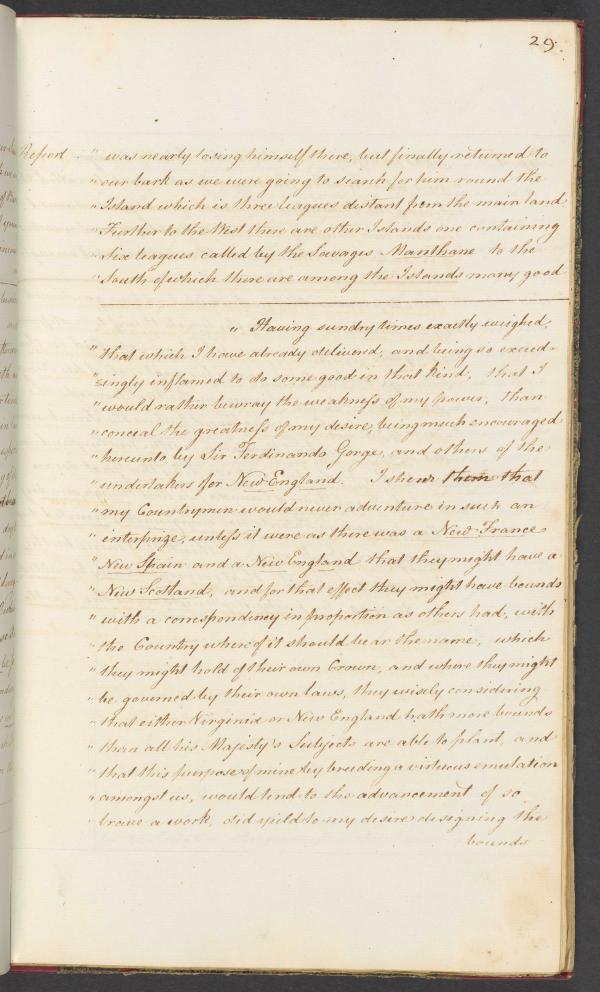 29.
Report - " was nearly losing himself there, but finally returned to
" our bark as we were going to search for him round the
" Island which is three leagues distant from the main land.
" Further to the West there are other Islands one containing
" six leagues called by the Savages Manthane to the
" South of which there are among the Islands many good
" Having sundry times exactly weighed,
" that which I have already delivered, and being so exceed-
" singly inflamed to do some good in that kind, that I
" would rather bewray the weakness of my power, than
" conceal the greatness of my desire, being much encouraged
" hereunto by Sir Ferdinando Gorge, and others of the
" undertakers for New England. I shew them that
" my Countrymen would never adventure in such an
" enterprize, unless it were as there was a New France
" New Spain and a New England that they might have a
" New Scotland, and for that effect they might have bounds
" with a correspondency in proportion as others had, with
" the Country whereof it should bear the name, which
" they might hold of their own Crown, and where they might
" be governed by their own laws, they wisely considering
" that either Virginia or New England hath more bounds
" than all his Majesty's Subjects are able to plant, and
" that this purpose of mine by breeding a virtuous emulation
" amongst us, would tend to the advancement of so
" brave a work, did yield to my desire designing the
bounds